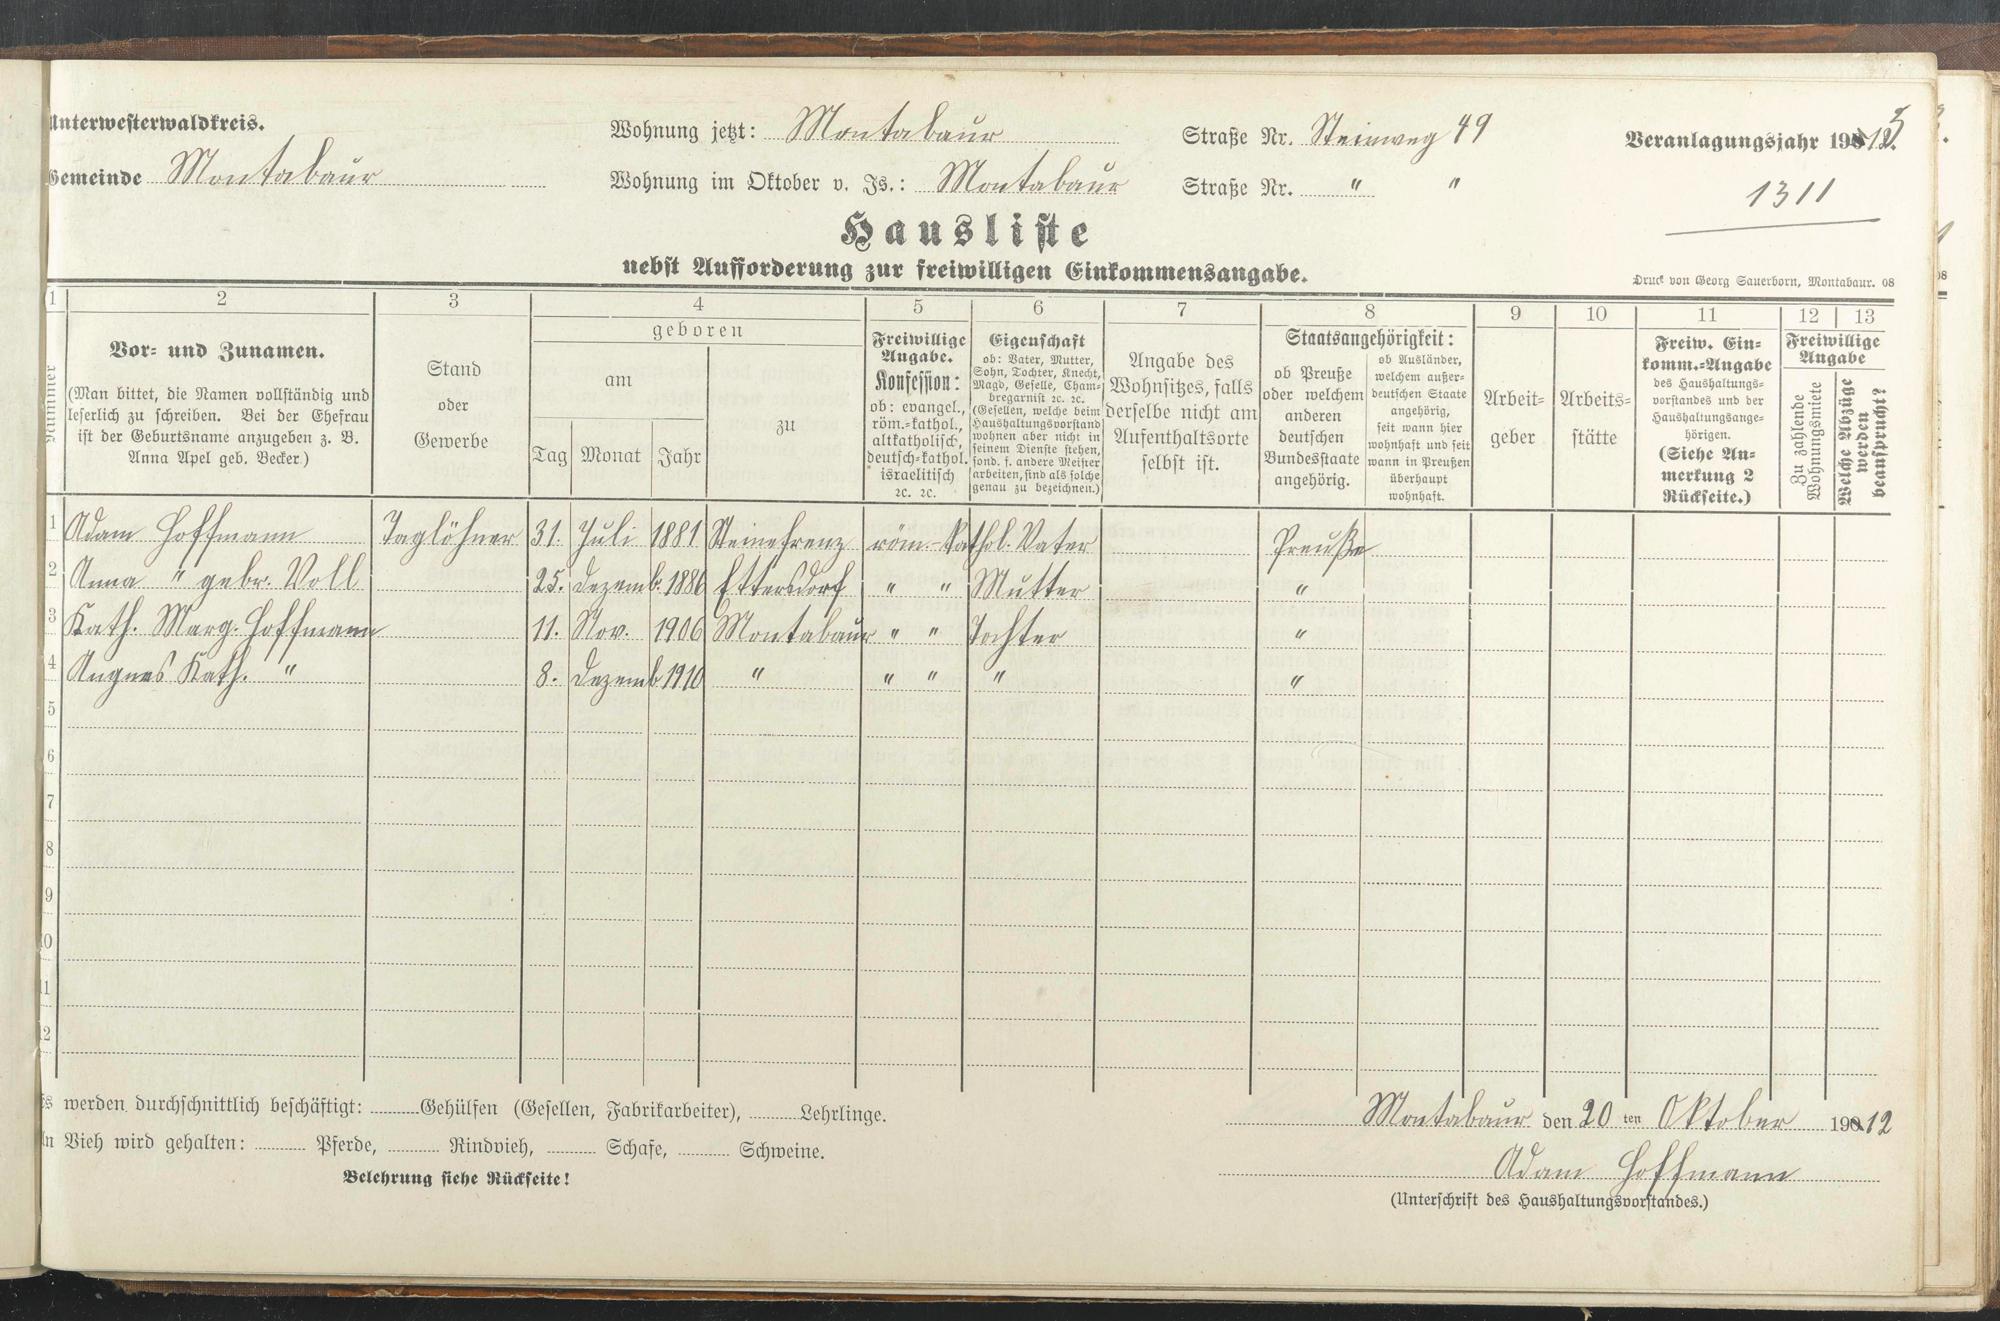 Unterwesterwaldkreis.
Wohnung jetzt: Montabaur Straße Nr. Steinweg 49
Veranlagungsjahr 1913.
Gemeinde Montabaur
Wohnung im Oktober v. Js.: Montabaur Straße Nr. " "
1311
Hausliste
nebst Aufforderung zur freiwilligen Einkommensangabe.
Druck von Georg Sauerborn, Montabaur. 08
1 2 3 4 5 6 7 8 9 10 11 12 13
Nummer
Vor- und Zunamen.
(Man bittet, die Namen vollständig und
leserlich zu schreiben. Bei der Ehefrau
ist der Geburtsname anzugeben z. B.
Anna Apel geb. Becker.)
Stand
oder
Gewerbe
geboren
am
Tag Monat Jahr
zu
Freiwillige
Angabe.
Konfession:
ob: evangel.,
röm.-kathol.,
altkatholisch,
deutsch-kathol.
israelitisch
ec. ec.
Eigenschaft
ob: Vater, Mutter,
Sohn, Tochter, Knecht,
Magd, Geselle, Cham-
bregarnist ec. ec.
(Gesellen, welche beim
Haushaltungsvorstand
wohnen aber nicht in
seinem Dienste stehen,
sond. f. andere Meister
arbeiten, sind als solche
genau zu bezeichnen.)
Angabe des
Wohnsitzes, falls
derselbe nicht am
Aufenthaltsorte
selbst ist.
Staatsangehörigkeit:
ob Preuße
oder welchem
anderen
deutschen
Bundesstaate
angehörig.
ob Ausländer,
welchem außer-
deutschen Staate
angehörig,
seit wann hier
wohnhaft und seit
wann in Preußen
überhaupt
wohnhaft.
Arbeit-
geber
Arbeits-
stätte
Freiw. Ein-
komm.-Angabe
des Haushaltungs-
vorstandes und der
Haushaltungsange-
hörigen.
(Siehe An-
merkung 2
Rückseite.)
Freiwillige
Angabe
Zu zahlende
Wohnungsmiete
Welche Abzüge
werden
beansprucht?
1 Adam Hoffmann Taglöhner 31. Juli 1881 Steinefrenz röm.-kathol. Vater Preuße
2 Anna " gebr. Voll 25. Dezemb. 1886 Ettersdorf " " Mutter "
3 Kath. Marg. Hoffmann 11. Nov. 1906 Montabaur " " Tochter "
4 Angnes Kath. " 8. Dezemb 1910 " " " " "
5
6
7
8
9
10
11
12
Es werden durchschnittlich beschäftigt: Gehülfen (Gesellen, Fabrikarbeiter), Lehrlinge.
An Vieh wird gehalten: Pferde, Rindvieh, Schafe, Schweine.
Belehrung siehe Rückseite!
Montabaur den 20 ten Oktober 1912
Adam Hoffmann
(Unterschrift des Haushaltungsvorstandes.)